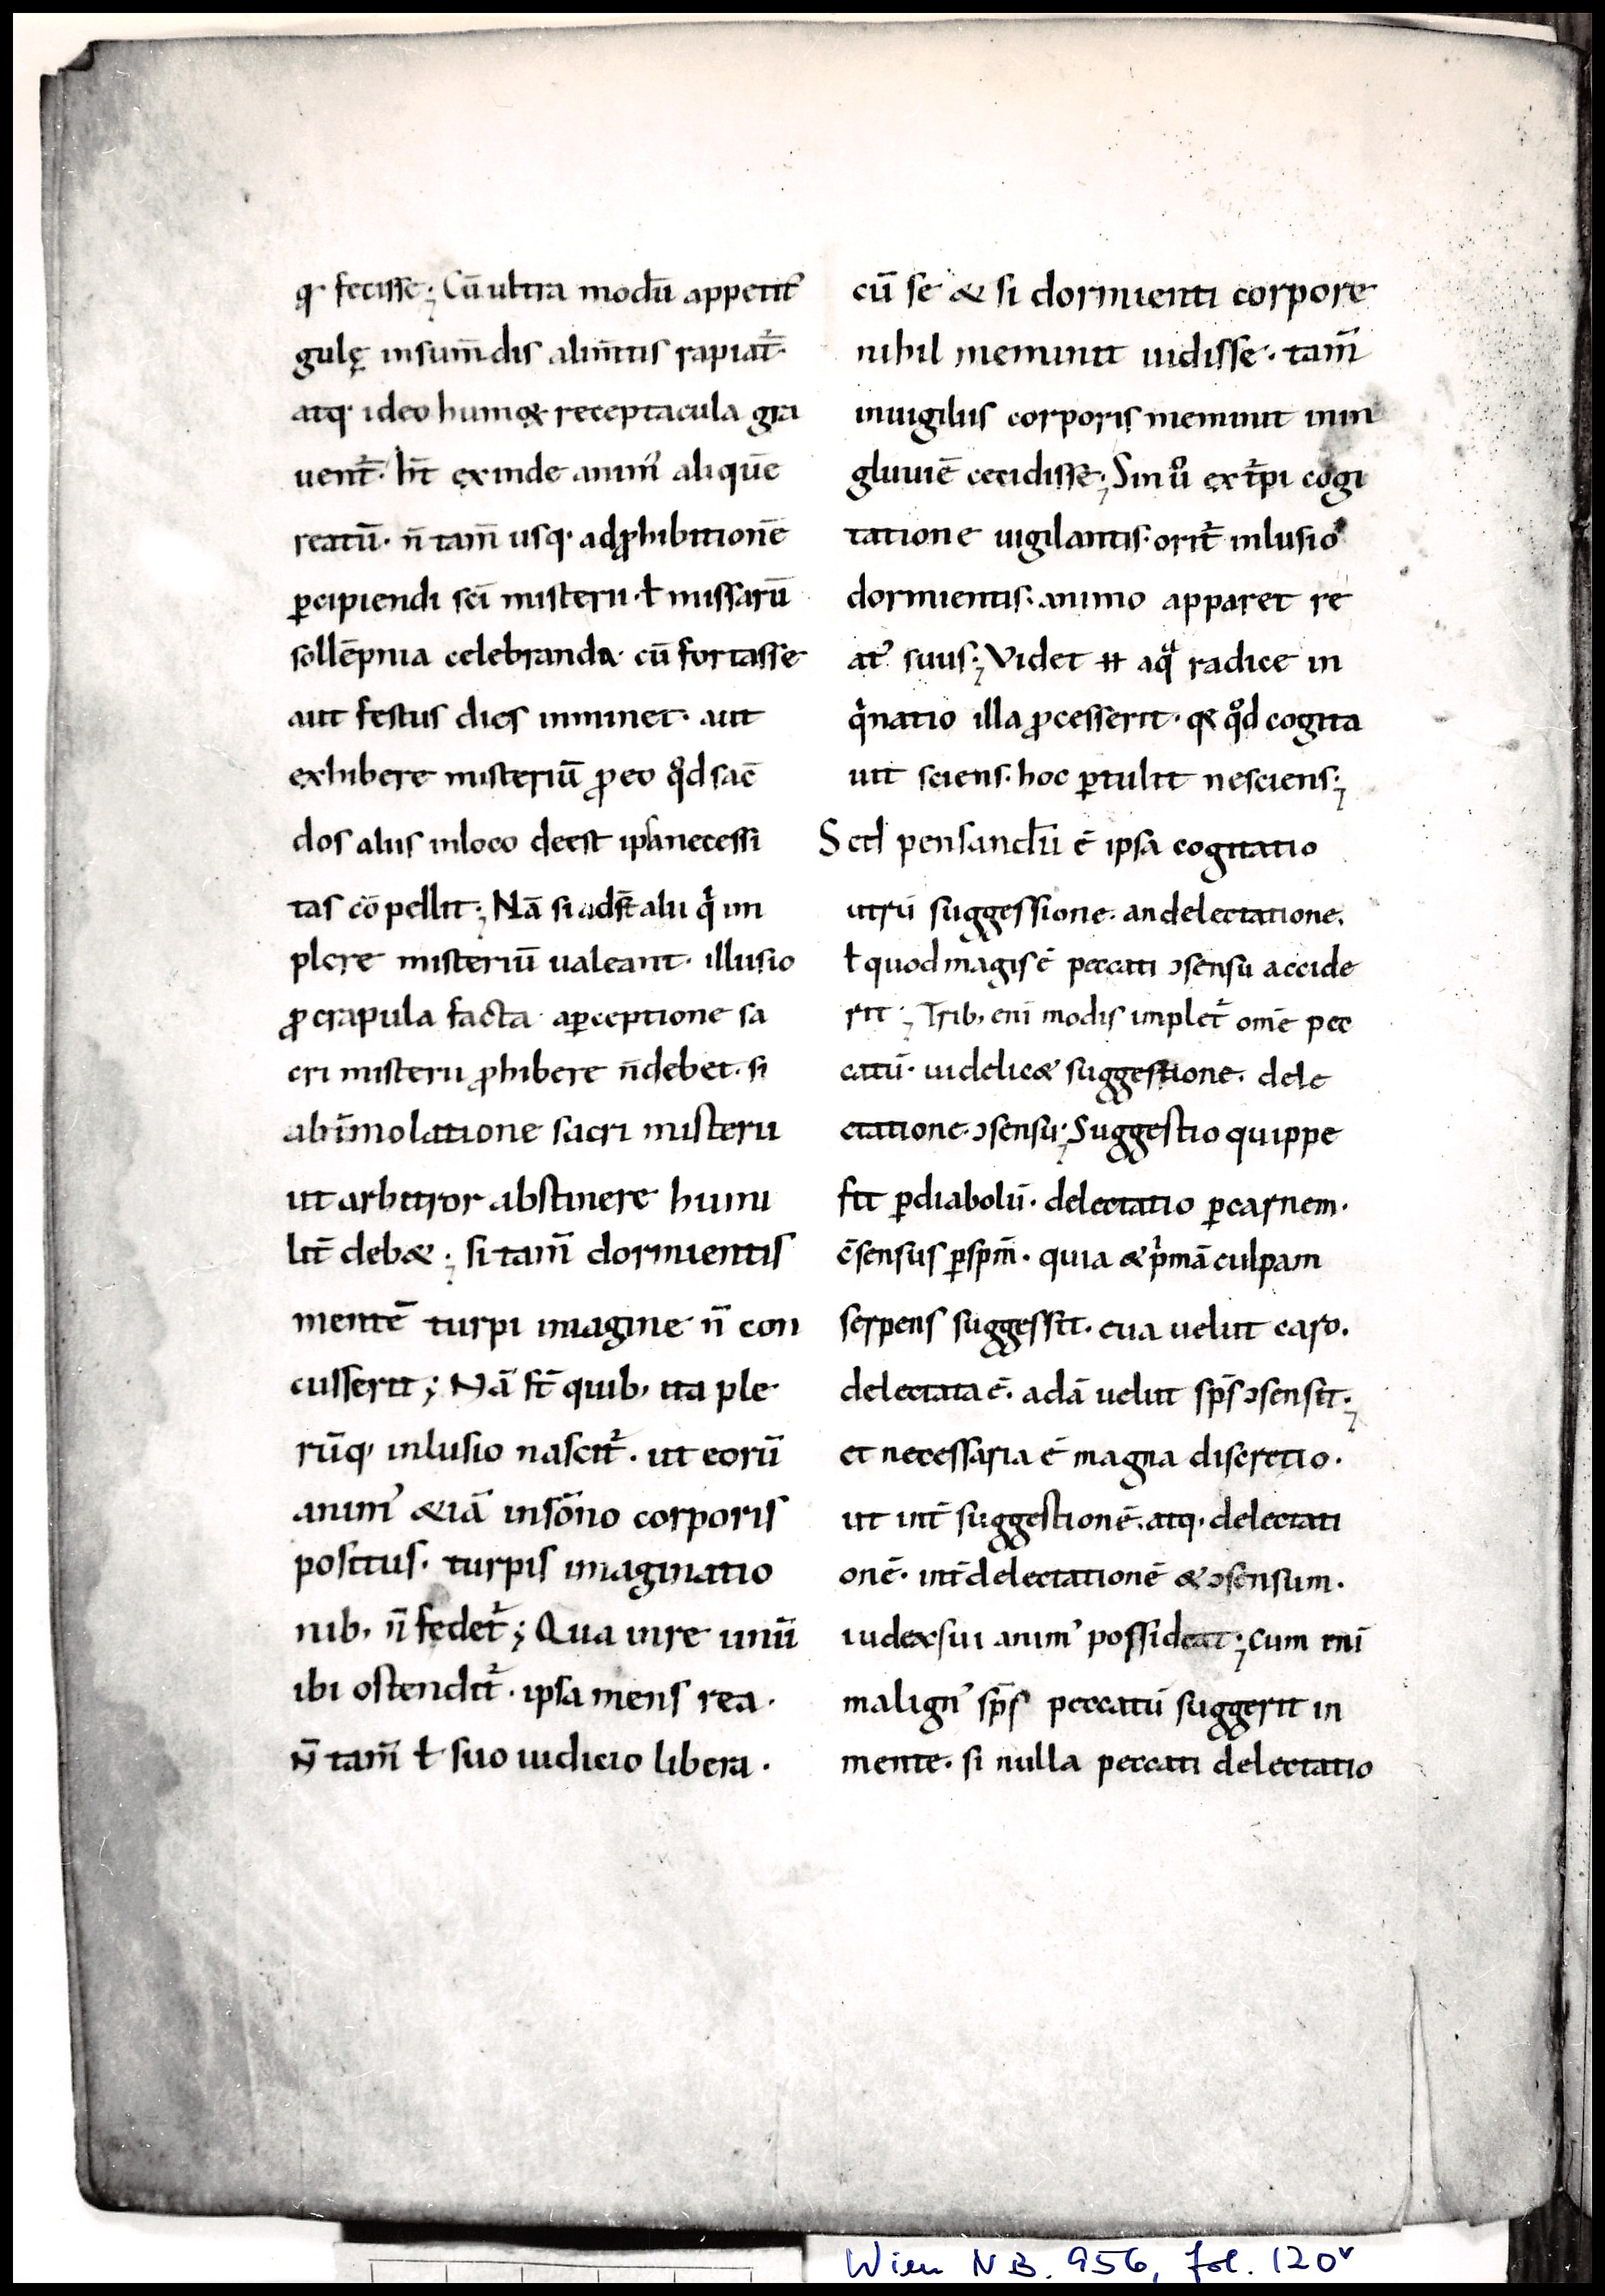 qꝫ fecisse; Cū ultra modū appetit᾽
gulę insum̄dis alim̄tis rapiat᷑·
atq· ideo humoꝝ receptacula gra
uent᷑· h̄t exinde anim᾽ aliquē
reatū· n̄ tam̄ usq· adꝓhibitionē
ꝑcipiendi sc̄i misterii· ł missarū
sollēpnia celebranda· cū fortasse
aut festus dies imminet· aut
exhibere misteriū ꝓ eo qͦd sac̄
dos alius inloco deest ipsa necessi
tas cōpellit; Nā si adst̄ alii qͥ im
plere misteriū ualeant· illusio
ꝓ crapula facta· aꝑceptione sa
cri misterii ꝓhibere n̄debet· si
abīmolatione sacri misterii
ut arbitror abstinere humi
lit̄ deb&; si tam̄ dormientis
mentē turpi imagine n̄ con
cusserit; Nā st̄ quib, ita ple
rūq, inlusio nascit᷑· ut eorū
anim᾽ &iā insōno corporis
positus· turpis imaginatio
nib, n̄ fedet᷑; Qua inre unū
ibi ostendit᷑· ipsa mens rea·
N̄ tam̄ ł suo iudicio libera·
cū se & si dormienti corpore
nihil meminit uidisse· tam̄
inuigiliis corporis meminit inin
gluuiē cecidisse; Sin uͦ ex t᷑pi cogi
tatione uigilantis· orit᷑ inlusio
dormientis· animo apparet re
at᾽ suus; Videt ħ aqᷓ radice in
qͥnatio illa ꝓcesserit· qꝫ qͦd cogita
uit sciens· hoc ꝑtulit nesciens;
Sed pensandū ē ipsa cogitatio
utrū suggessione· andelectatione·
ł quod magis ē peccati ɔsensu accide
rit; Trib, eni modis implet᷑ om̄e pec
catū· uidelic& suggestione· dele
ctatione· ɔsensu; Suggestio quippe
fit ꝑdiabolū· delectatio ꝑcarnem·
c̄sensus ꝑsp̄m· quia & pͥmā culpam
serpens suggessit· eua uelut caro·
delectata ē· adā uelut sp̄s ɔsensit;
et necessaria ē magna discretio·
ut int̄ suggestionē· atq· delectati
onē· int̄delectationē & ɔsensum·
iudexsui anim᾽ possideat; Cum eni
malign᾽ sp̄s peccatū suggerit in
mente· si nulla peccati delectatio
Wien NB. 956, fol. 120ᵛ